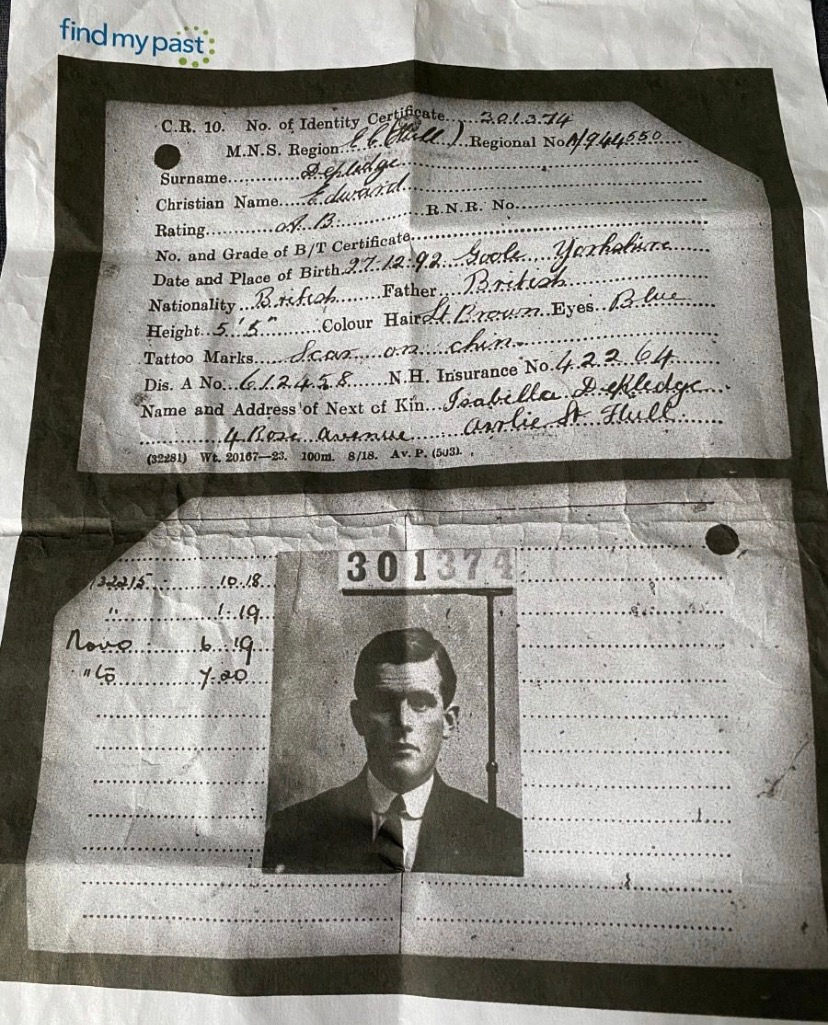 findmypast
C.R. 10. No. of Identity Certificate 301374
M.N.S. Region (Hull) Regional No. 944550
Surname Depledge
Christian Name Edward
Rating A.B. R.N.R. No.
No. and Grade of B/T Certificate
Date and Place of Birth 27.12.92 Goole Yorkshire
Nationality British Father British
Height 5'5" Colour Hair Lt Brown Eyes Blue
Tattoo Marks Scar on chin.
Dis. A No. 612458 N.H. Insurance No. 42264
Name and Address of Next of Kin Isabella Depledge
4 Rose Avenue St Hull
(32281) Wt. 20167—23. 100m. 8/18. Av. P. (503).
301374
132215 10.18
" 1.19
6.19
" 7.20